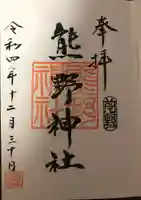 奉拝
熊野神社
令和四年十二月三十日